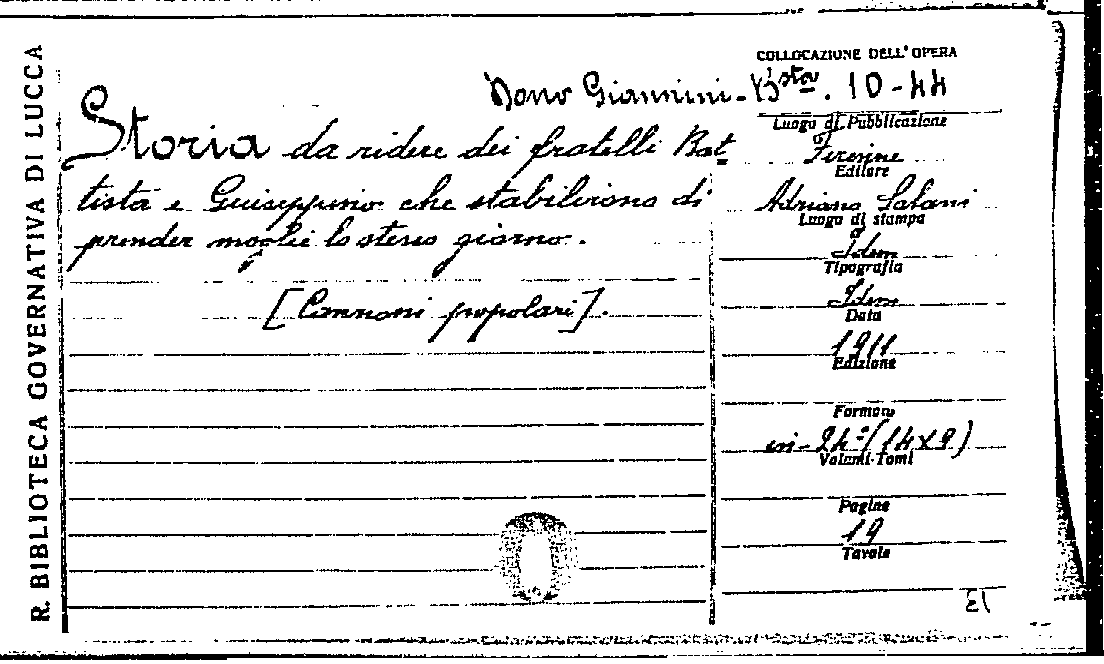 R. BIBLIOTECA GOVERNATIVA DI LUCCA
COLLOCAZIONE DELL'OPERA
Dono Giannini - Bsta. 10-44
Storia da ridere dei fratelli Bat
tista e Guiseppino che stabilirono di
prender moglie lo stesso giorno.
[Canzoni popolari].
Luogo di Pubblicazione
Firenze
Editore
Adriano Salani
Luogo di stampa
Idem
Tipografia
Idem
Data
1911
Edizione
Formato
in-24º (14x9)
Volumi-Tomi
Pagine
19
Tavole